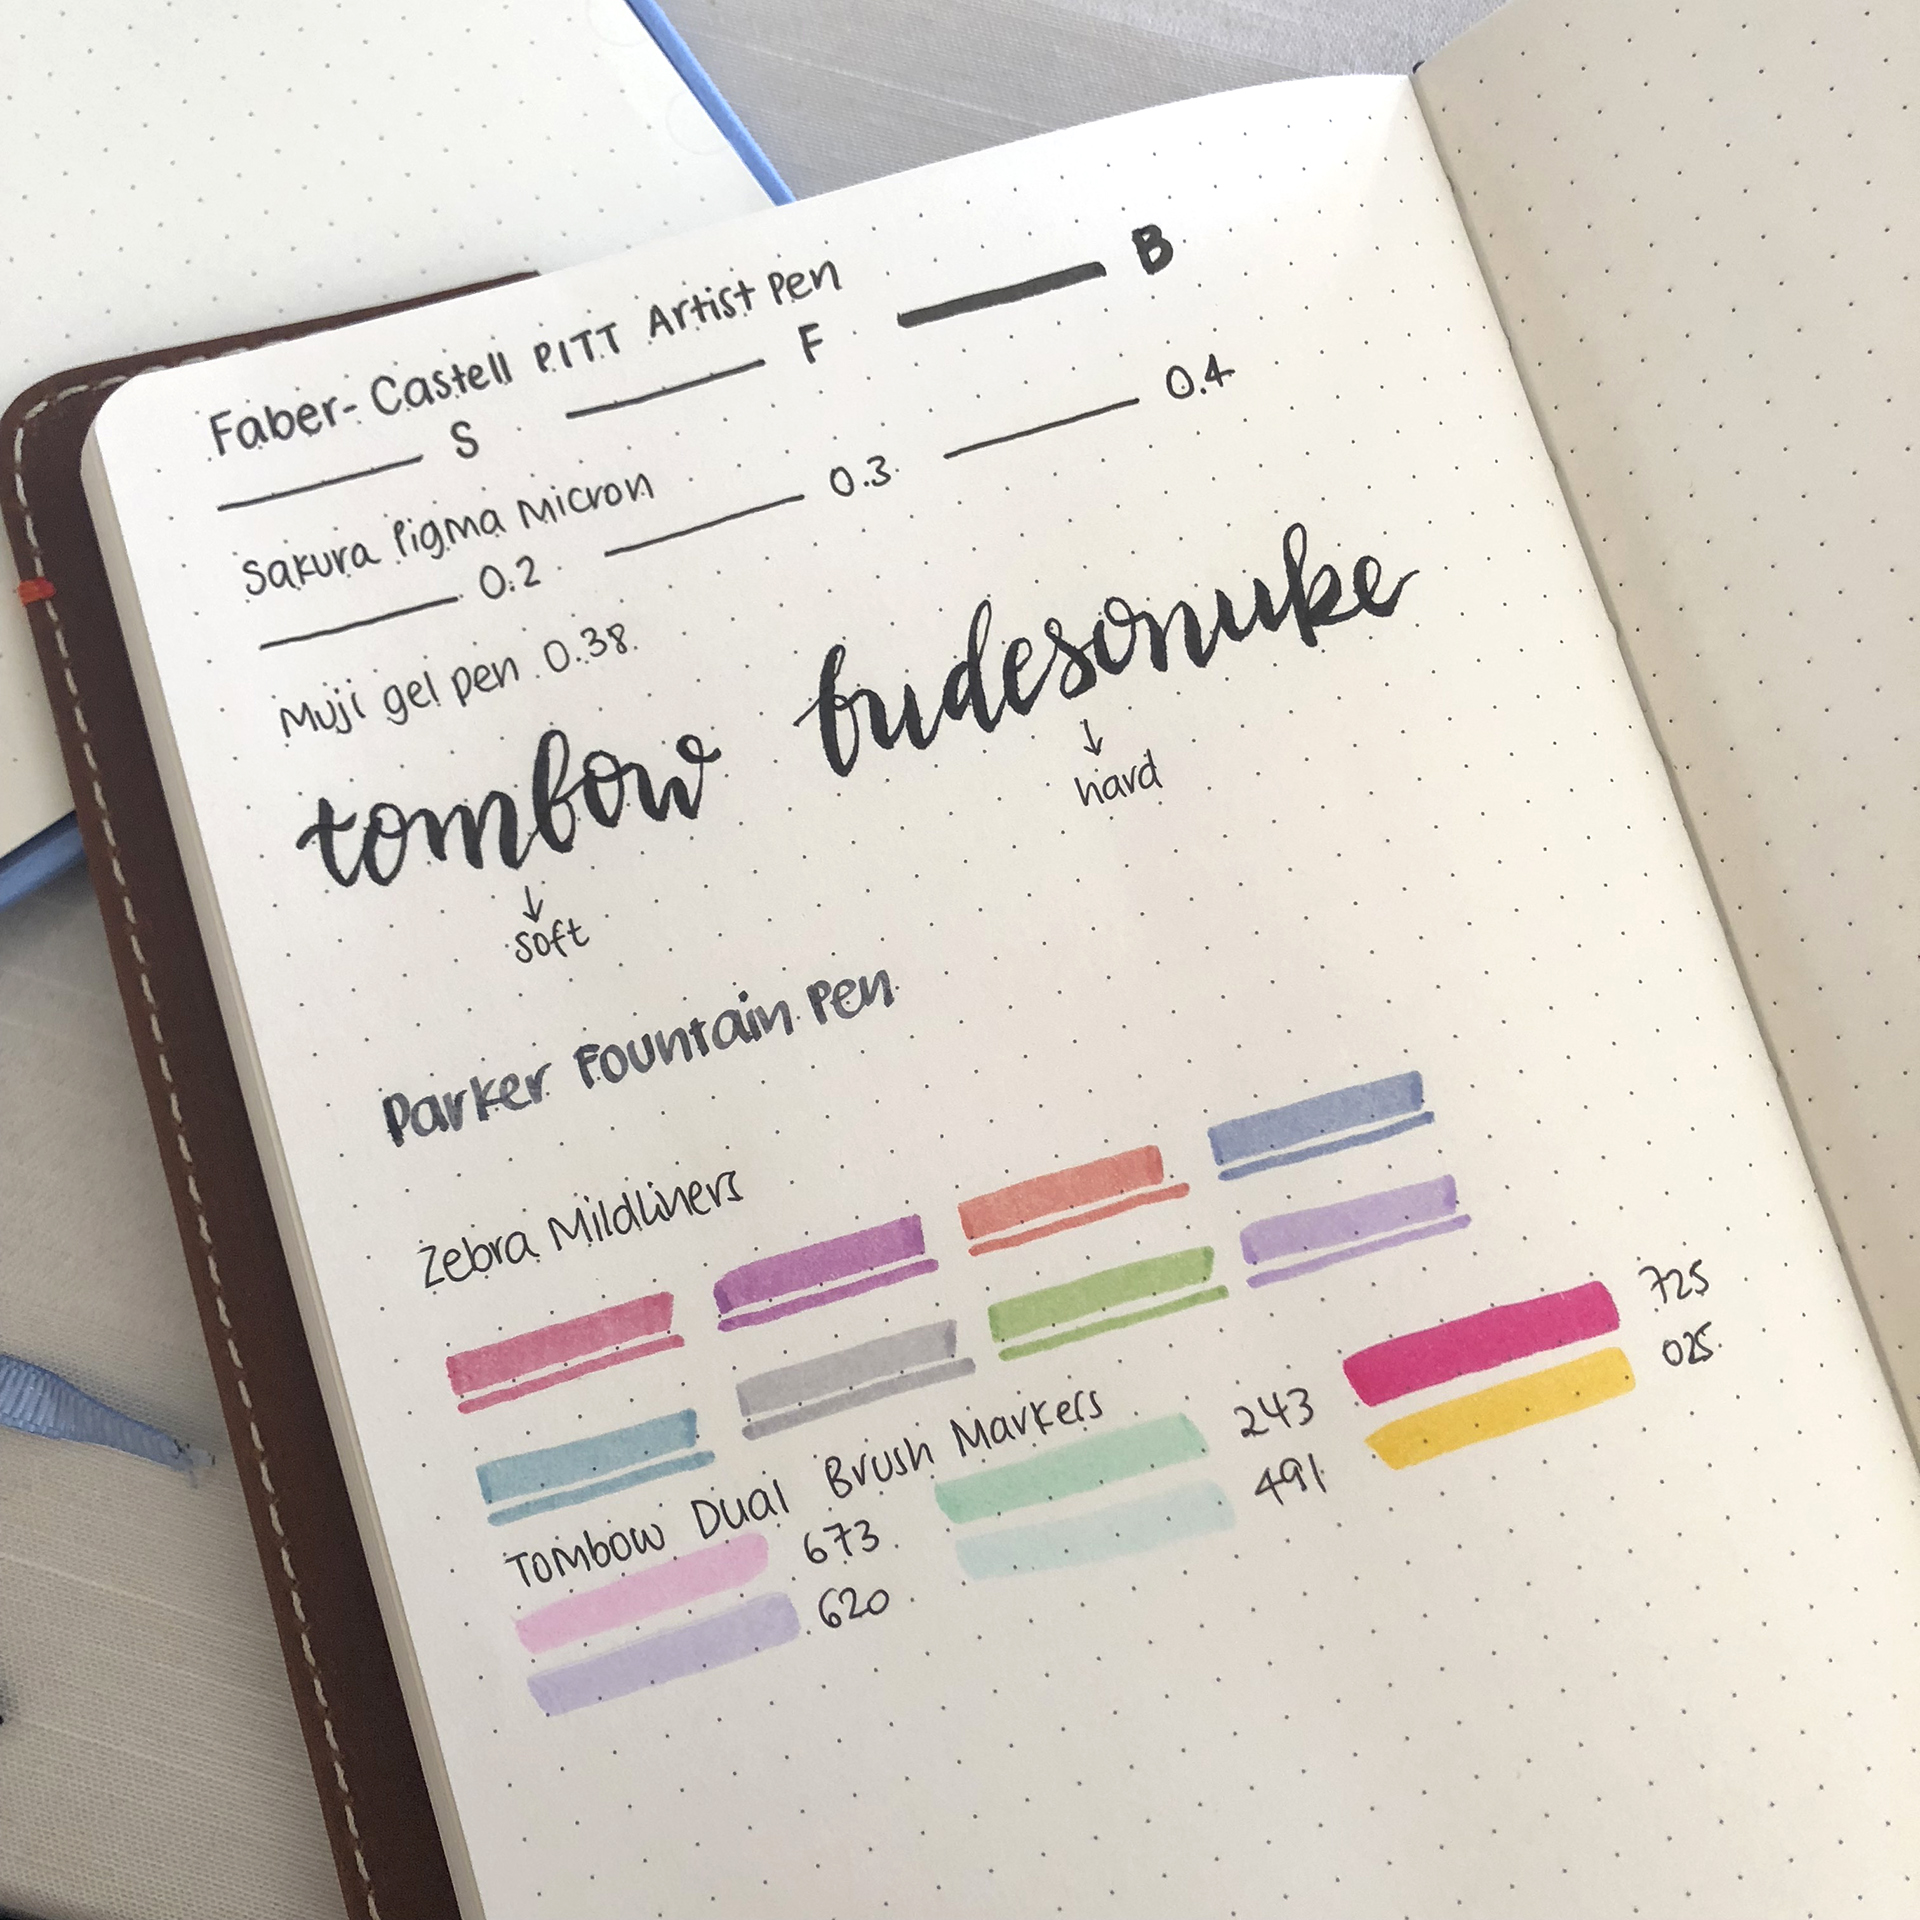 Faber-Castell PITT Artist Pen
S F B
Sakura Pigma Micron
0.2 0.3 0.4
Muji gel pen 0.38
tombow budesonuke
soft hard
Parker Fountain Pen
Zebra Mildliners
Tombow Dual Brush Markers
673 243 725
620 491 025